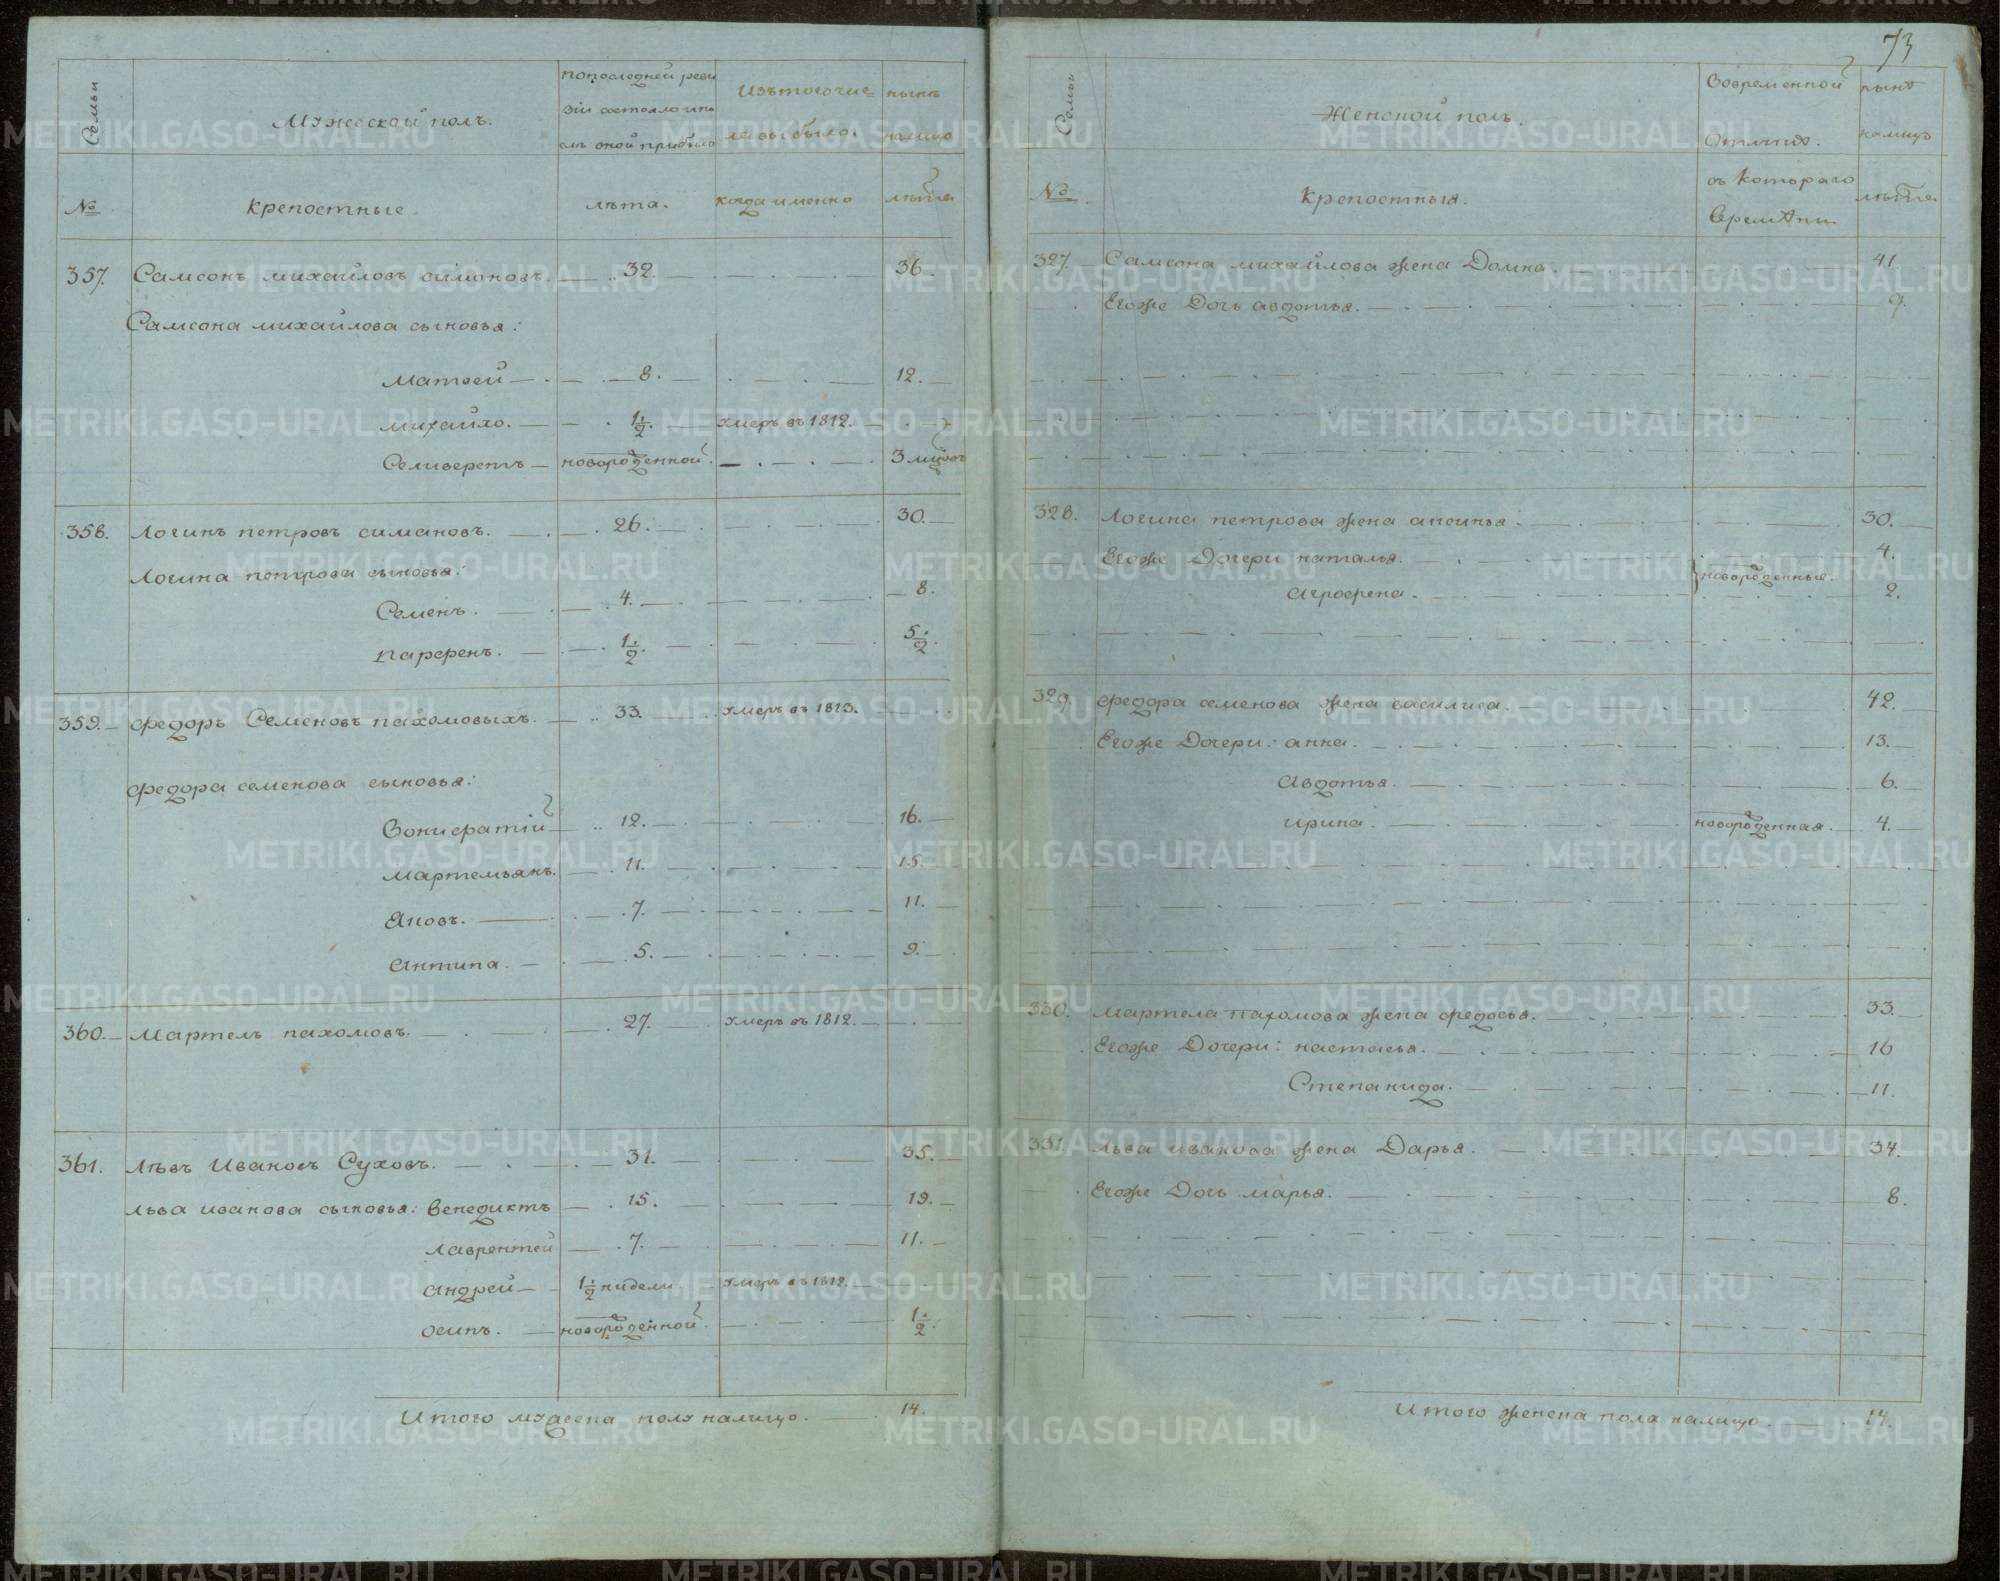 Семьи
Мужескои полъ.
попоследней реви
зіи состояло ипо
слѣ оной прибыло
Изътогочис=
ла выбыло.
нынѣ
налицо
№
крепостные.
лѣта.
когда именно
лѣта
357. Самсонъ михайловъ симоновъ. 32. 36.
Самсона михайлова сыновья:
матвей 8. 12.
михайло. 1/2. Умеръ въ 1812.
Селиверстъ новорожденной. 3 мцовъ
358. Логинъ петровъ симановъ. 26. 30.
Логина петрова сыновья:
Семенъ. 4. 8.
парфенъ. 1 1/2. 5 1/2
359. федоръ Семеновъ пахомовыхъ. 33. Умеръ въ 1813.
федора семенова сыновья:
Вонифатій 12. 16.
мартемьянъ. 11. 15.
яковъ. 7. 11.
антипа. 5. 9.
360. Мартелъ пахомовъ. 27. Умеръ въ 1812.
361. Лѣвъ Ивановъ Суховъ. 31. 35.
льва иванова сыновья: венедиктъ 15. 19.
лаврентей 7. 11.
андрей 1 1/2 нидели. Умеръ въ 1812.
осипъ. новорожденной. 1 1/2.
Итого мужеска полу налицо. 14.
73
Семьи
Женской полъ.
Вовременной
Отлучке.
нынѣ
налицо
№.
крепостныя.
съ котораго
времени
лѣта
327 Самсона михайлова жена Домна. 41.
Егоже Дочь авдотья. 9.
328. Логина петрова жена аксинья. 30.
Егоже Дочери наталья. 4.
новорожденные.
агрофена. 2.
329. федора семенова жена василиса. 42.
Егоже Дочери: анна. 13.
авдотья. 6.
ирина. новорожденная. 4.
330. мартела пахомова жена федосья. 33.
Егоже Дочери: настасья. 16
Степанида. 11.
331 льва иванова жена Дарья. 34.
Егоже Дочь марья. 8.
Итого женска пола налицо. 14.
METRIKI.GASO-URAL.RU